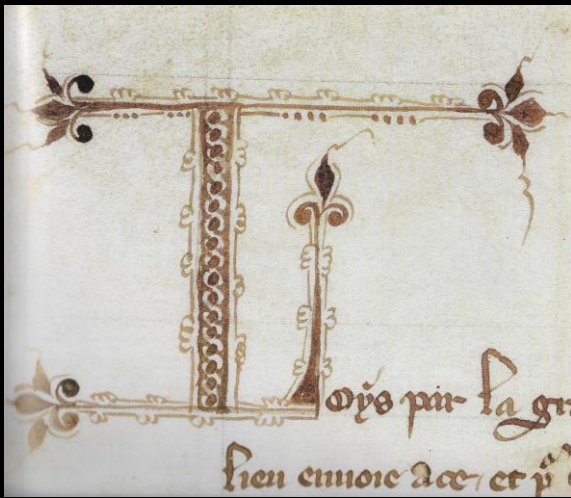 Loys par la gra
lieu enuoie a ce et p